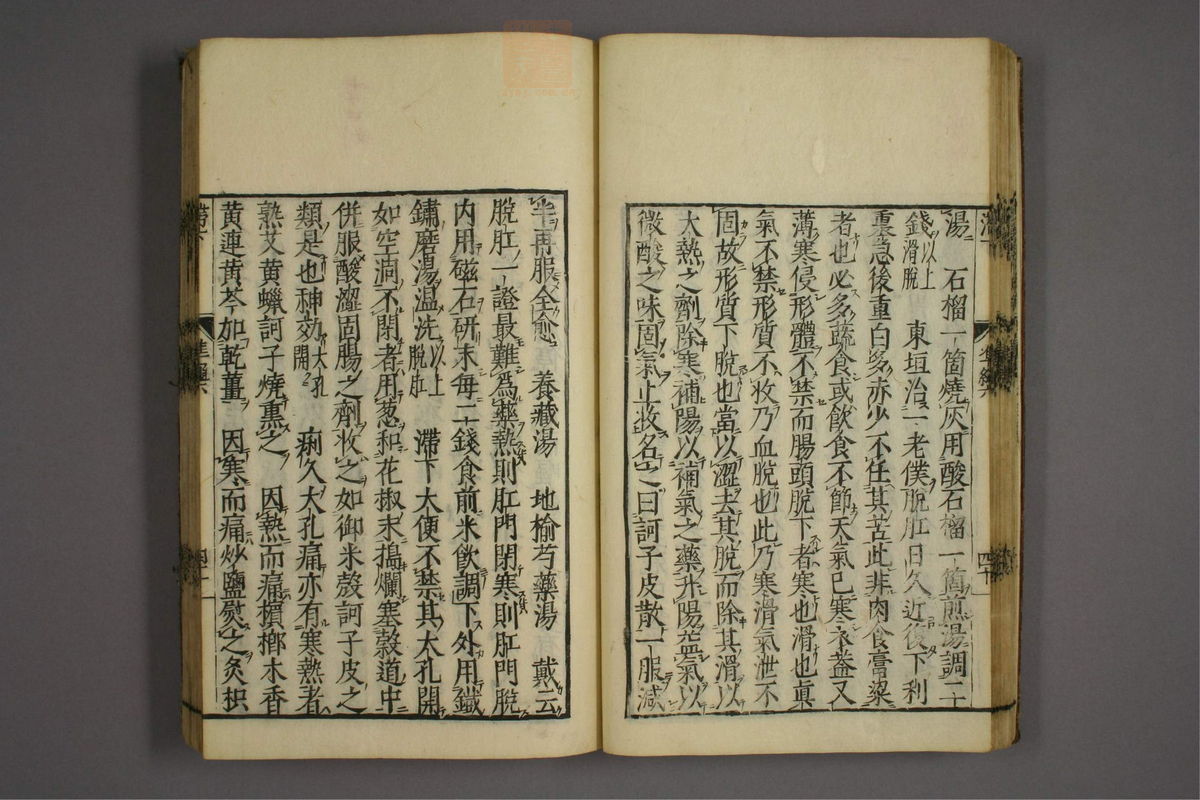 湯　石榴一箇燒灰用酸石榴一箇煎湯調二十
錢以上滑脫　東垣治一老僕脫肛日久近復下利
裏急後重白多赤少不任其苦此非肉食膏粱
者也必多蔬食或飲食不節天氣已寒衣蓋又
薄寒侵形體不禁而腸頭脫下者寒也滑也眞
氣不禁形質不收乃血脫也此乃寒滑氣泄不
固故形質下脫也當以澀去其脫而除其滑以
大熱之劑除寒補陽以補氣之藥升陽益氣以
微酸之味固氣止收名之曰訶子皮散一服減
半再服全愈　養藏湯　地榆芍藥湯　戴云
脫肛一證最難爲藥熱則肛門閉寒則肛門脫
内用磁石研末每二錢食前米飲調下外用鐵
鏽磨湯温洗以上脫肛　滯下大便不禁其大孔開
如空洞不閉者用葱和花椒末搗爛塞穀道中
併服酸澀固腸之劑收之如御米殼訶子皮之
類是也神効大孔開　痢久大孔痛亦有寒熱者
熟艾黄蠟訶子燒熏之　因熱而痛檳榔木香
黄連黄芩加乾薑　因寒而痛炒鹽熨之灸枳
滯下
四十
四十一